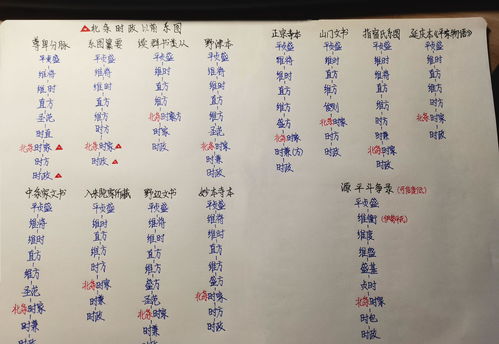 北条时政以前系图
尊卑分脉
平贞盛
维将
维时
直方
圣范
时直
北条时家
时方
时政
系图纂要
平贞盛
维将
维时
直方
维方
时方
北条时家
时政
续群书类从
平贞盛
维时
直方
维方
北条时家
时政
野津本
平贞盛
维将
维时
直方
维方
圣范
北条时家
时兼
时政
正宗寺本
平贞盛
维将
维时
直方
维方
盛方
北条时家
时兼(方)
时政
山门文书
平贞盛
维时
直方
维方
北条时家
时方
时政
指宿氏系图
平贞盛
维将
维时
直方
维方
时家
北条时家
时政
延庆本《平家物语》
平贞盛
维时
直方
维方
北条时家
时政
中条家文书
平贞盛
维将
维时
直方
维方
圣范
北条时家
时兼
时政
入来院家所藏
平贞盛
维将
直方
维方
时方
北条时家
时兼
时政
野辺文书
平贞盛
维将
维时
直方
维方
盛方
圣范
北条时家
时兼
时政
妙本寺本
平贞盛
维将
维时
直方
维方
盛方
北条时家
时方
时政
源平斗争录(可信度低)
平贞盛
维衡(伊势平氏)
维度
维盛
盛基
贞时
北条时家
时包
时政